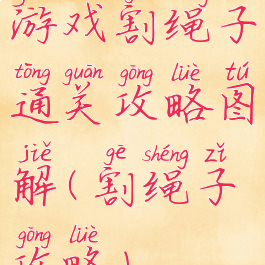 游戏割绳子
tōng guān gōng lüè tú
通关攻略图
jiě gē shéng zǐ
解(割绳子
gōng lüè
攻略)